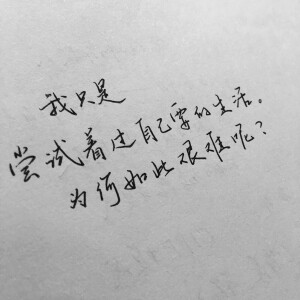 我只是
尝试着过自己要的生活。
为何如此艰难呢？